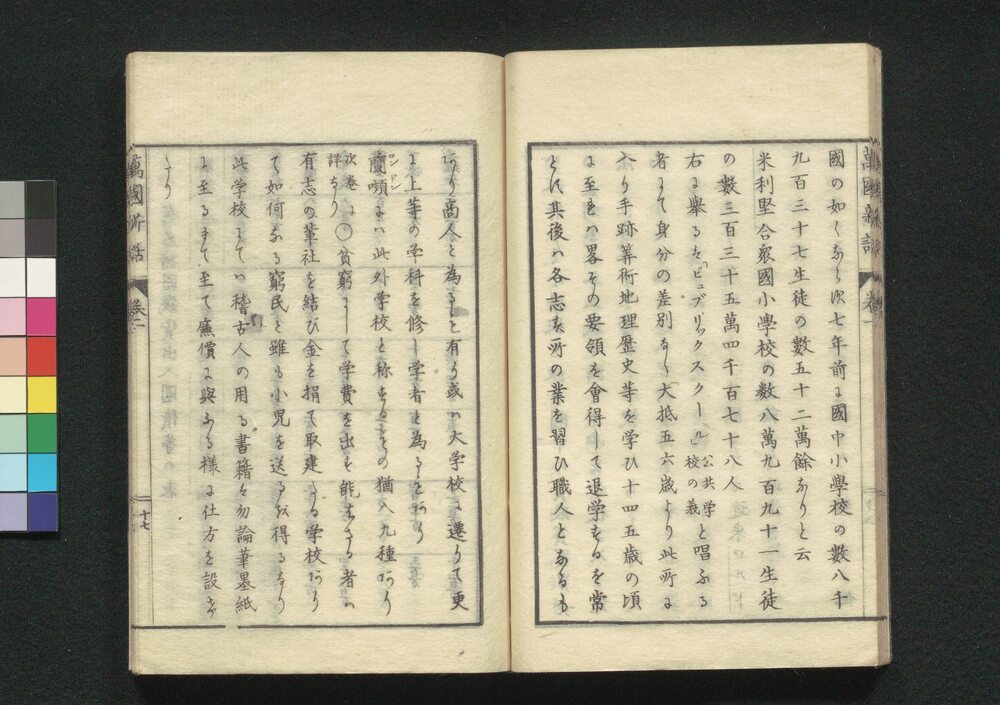 國の如しあらバ次七年前に國中小學校の數八千
九百三十七生徒の數五十二萬餘なりと云
米利堅合衆國小學校の数八萬九百九十一生徒
の數三百三十五萬四千百七十八人
右に舉るを「ピュブリックスクール」公共学校の義と唱ふる
者にて身分の差別なく大抵五六歳より此所に
入り手跡筭術地理歴史等を学ひ十四五歳の頃
に至れハ畧その要領を會得して退学するを常
とす其後ハ各志す所の業を習ひ職人となるも
萬國新話
卷一
あり商人と為るも有り或ハ大学校に遷りて更
に上等の学科を修し学者と為るもあり
蘭頓ロンドンにハ此外学校と称するもの猶八九種あり
次巻に詳なり〇貧窮にして学費を出す能はさる者ハ
有志の輩社を結び金を捐て取建たる学校あり
て如何なる窮民と雖も小児を送るを得るなり
此学校にてハ稽古人の用る書籍ハ勿論筆墨紙
に至るまて至て廉價に與ふる様に仕方を設け
たり
萬國新話
卷一
十七